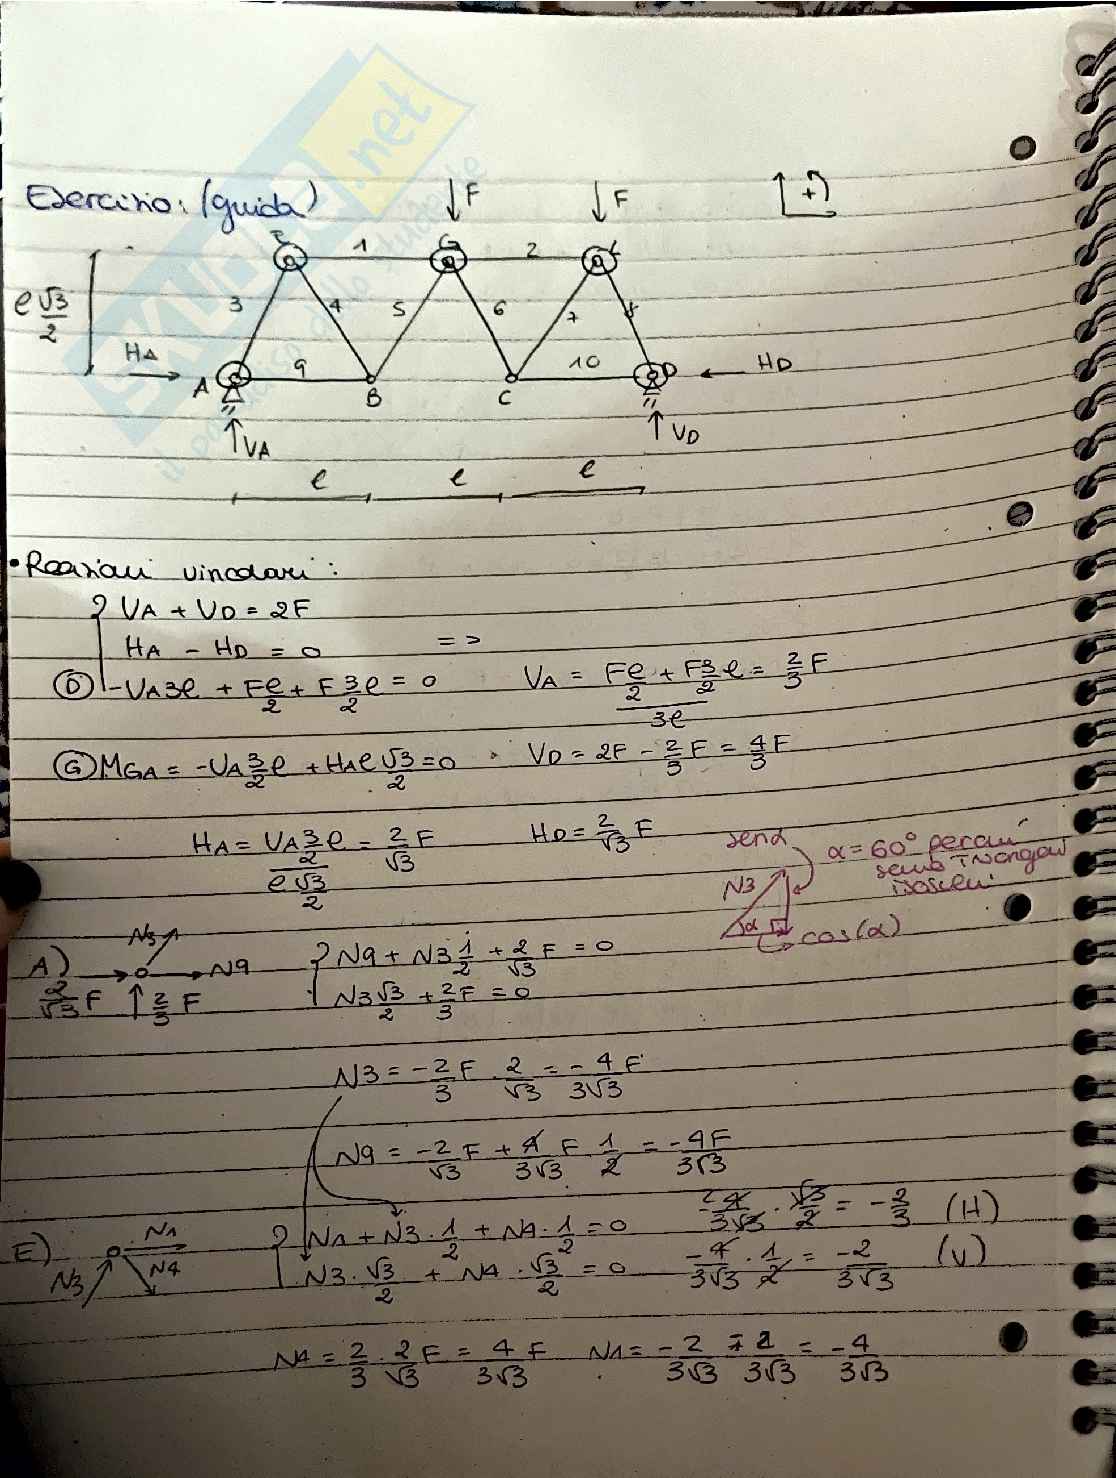 Esercizio: (guida)
F
F
+
E
1
G
2
L
3
4
5
6
7
8
e √3/2
HA
A
9
B
C
10
D
HD
VA
VD
e
e
e
• Reazioni vincolari :
VA + VD = 2F
HA - HD = 0 =>
(D) -VA3e + Fe/2 + F 3/2 e = 0
VA = (Fe/2 + F3/2 e)/3e = 2/3 F
(G) MGA = -VA 3/2 e + HA e √3/2 = 0
VD = 2F - 2/3 F = 4/3 F
HA = (VA 3/2 e)/(e √3/2) = 2/√3 F
HD = 2/√3 F
senα
N3
α
cos(α)
α = 60° perciui
sono Triangoli
isosceli
A)
N3
N9
2/√3 F
2/3 F
N9 + N3 1/2 + 2/√3 F = 0
N3 √3/2 + 2/3 F = 0
N3 = -2/3 F · 2/√3 = -4/3√3 F
N9 = -2/√3 F + 4/3√3 F 1/2 = -4F/3√3
E)
N1
N4
N3
N1 + N3 · 1/2 + N4 · 1/2 = 0
-4/3√3 · √3/2 = -2/3 (H)
N3 · √3/2 + N4 · √3/2 = 0
-4/3√3 · 1/2 = -2/3√3 (V)
N4 = 2/3 · 2/√3 F = 4/3√3 F
N1 = -2/3√3 - 2/3√3 = -4/3√3
SKUOLA.net
il paradiso dello studente